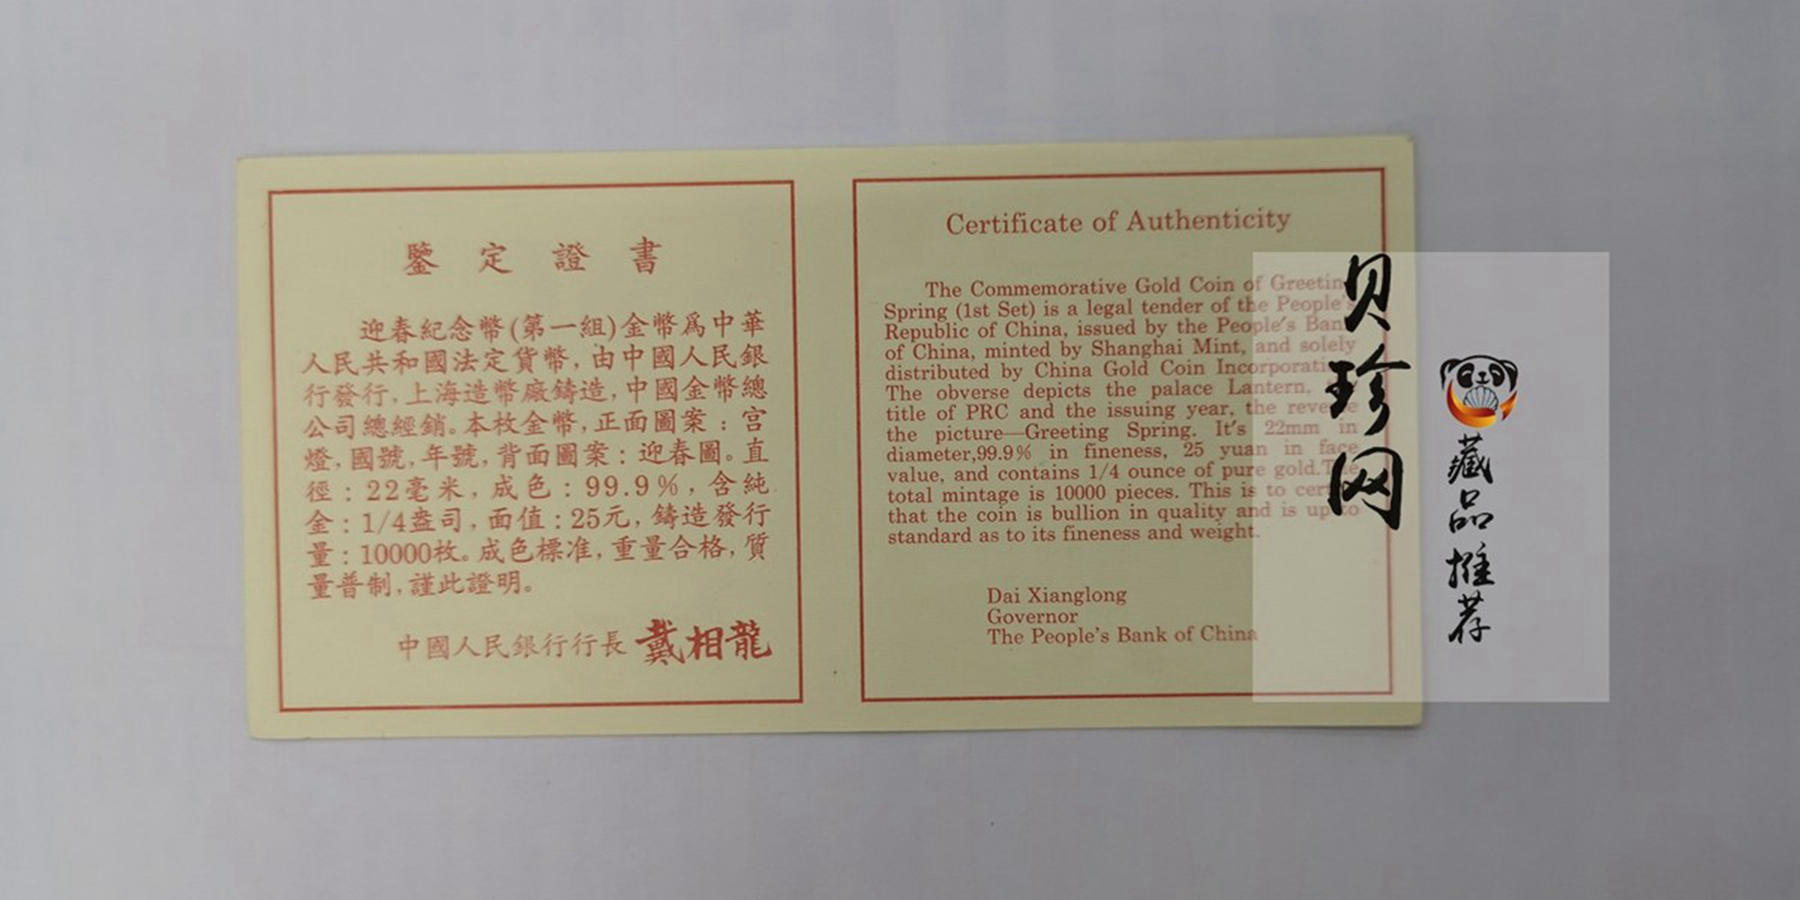 鑒定證書
迎春紀念幣(第一組)金幣爲中華
人民共和國法定貨幣,由中國人民銀
行發行,上海造幣廠鑄造,中國金幣總
公司總經銷。本枚金幣,正面圖案:宮
燈,國號,年號,背面圖案:迎春圖。直
徑:22毫米,成色:99.9%,含純
金:1/4盎司,面值:25元,鑄造發行
量:10000枚。成色標准,重量合格,質
量普制,謹此證明。
中國人民銀行行長 戴相龍
Certificate of Authenticity
The Commemorative Gold Coin of Greeting
Spring (1st Set) is a legal tender of the People's
Republic of China, issued by the People's Bank
of China, minted by Shanghai Mint, and solely
distributed by China Gold Coin Incorporation.
The obverse depicts the palace Lantern,
title of PRC and the issuing year, the reverse
the picture—Greeting Spring. It's 22mm in
diameter,99.9% in fineness, 25 yuan in face
value, and contains 1/4 ounce of pure gold.The
total mintage is 10000 pieces. This is to certify
that the coin is bullion in quality and is up to
standard as to its fineness and weight.
Dai Xianglong
Governor
The People's Bank of China
贝珍网
藏品推荐